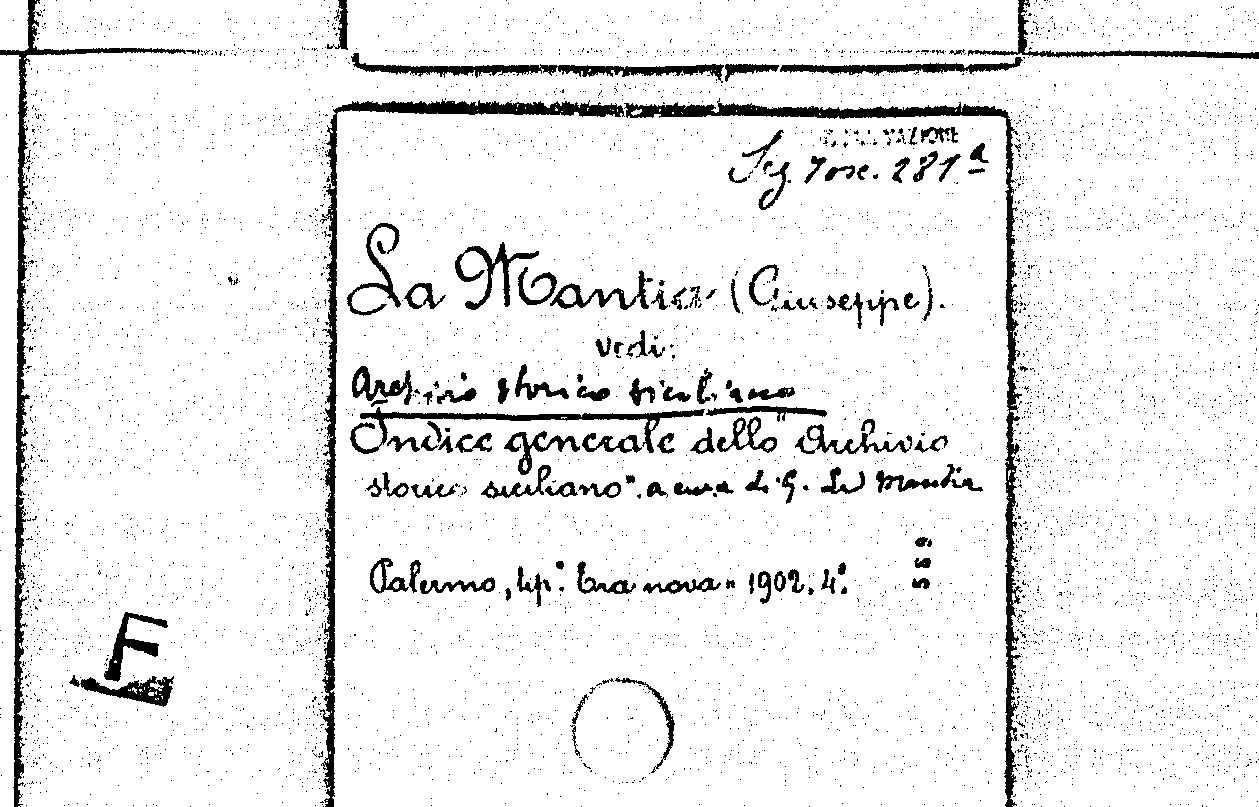 Seg. Tosc. 281ª
La Mantia (Giuseppe).
vedi:
Archivio storico siciliano
Indice generale dello "Archivio
storico siciliano". a cura di G. La Mantia
Palermo, tip.º Era nova" 1902. 4º.
589
F